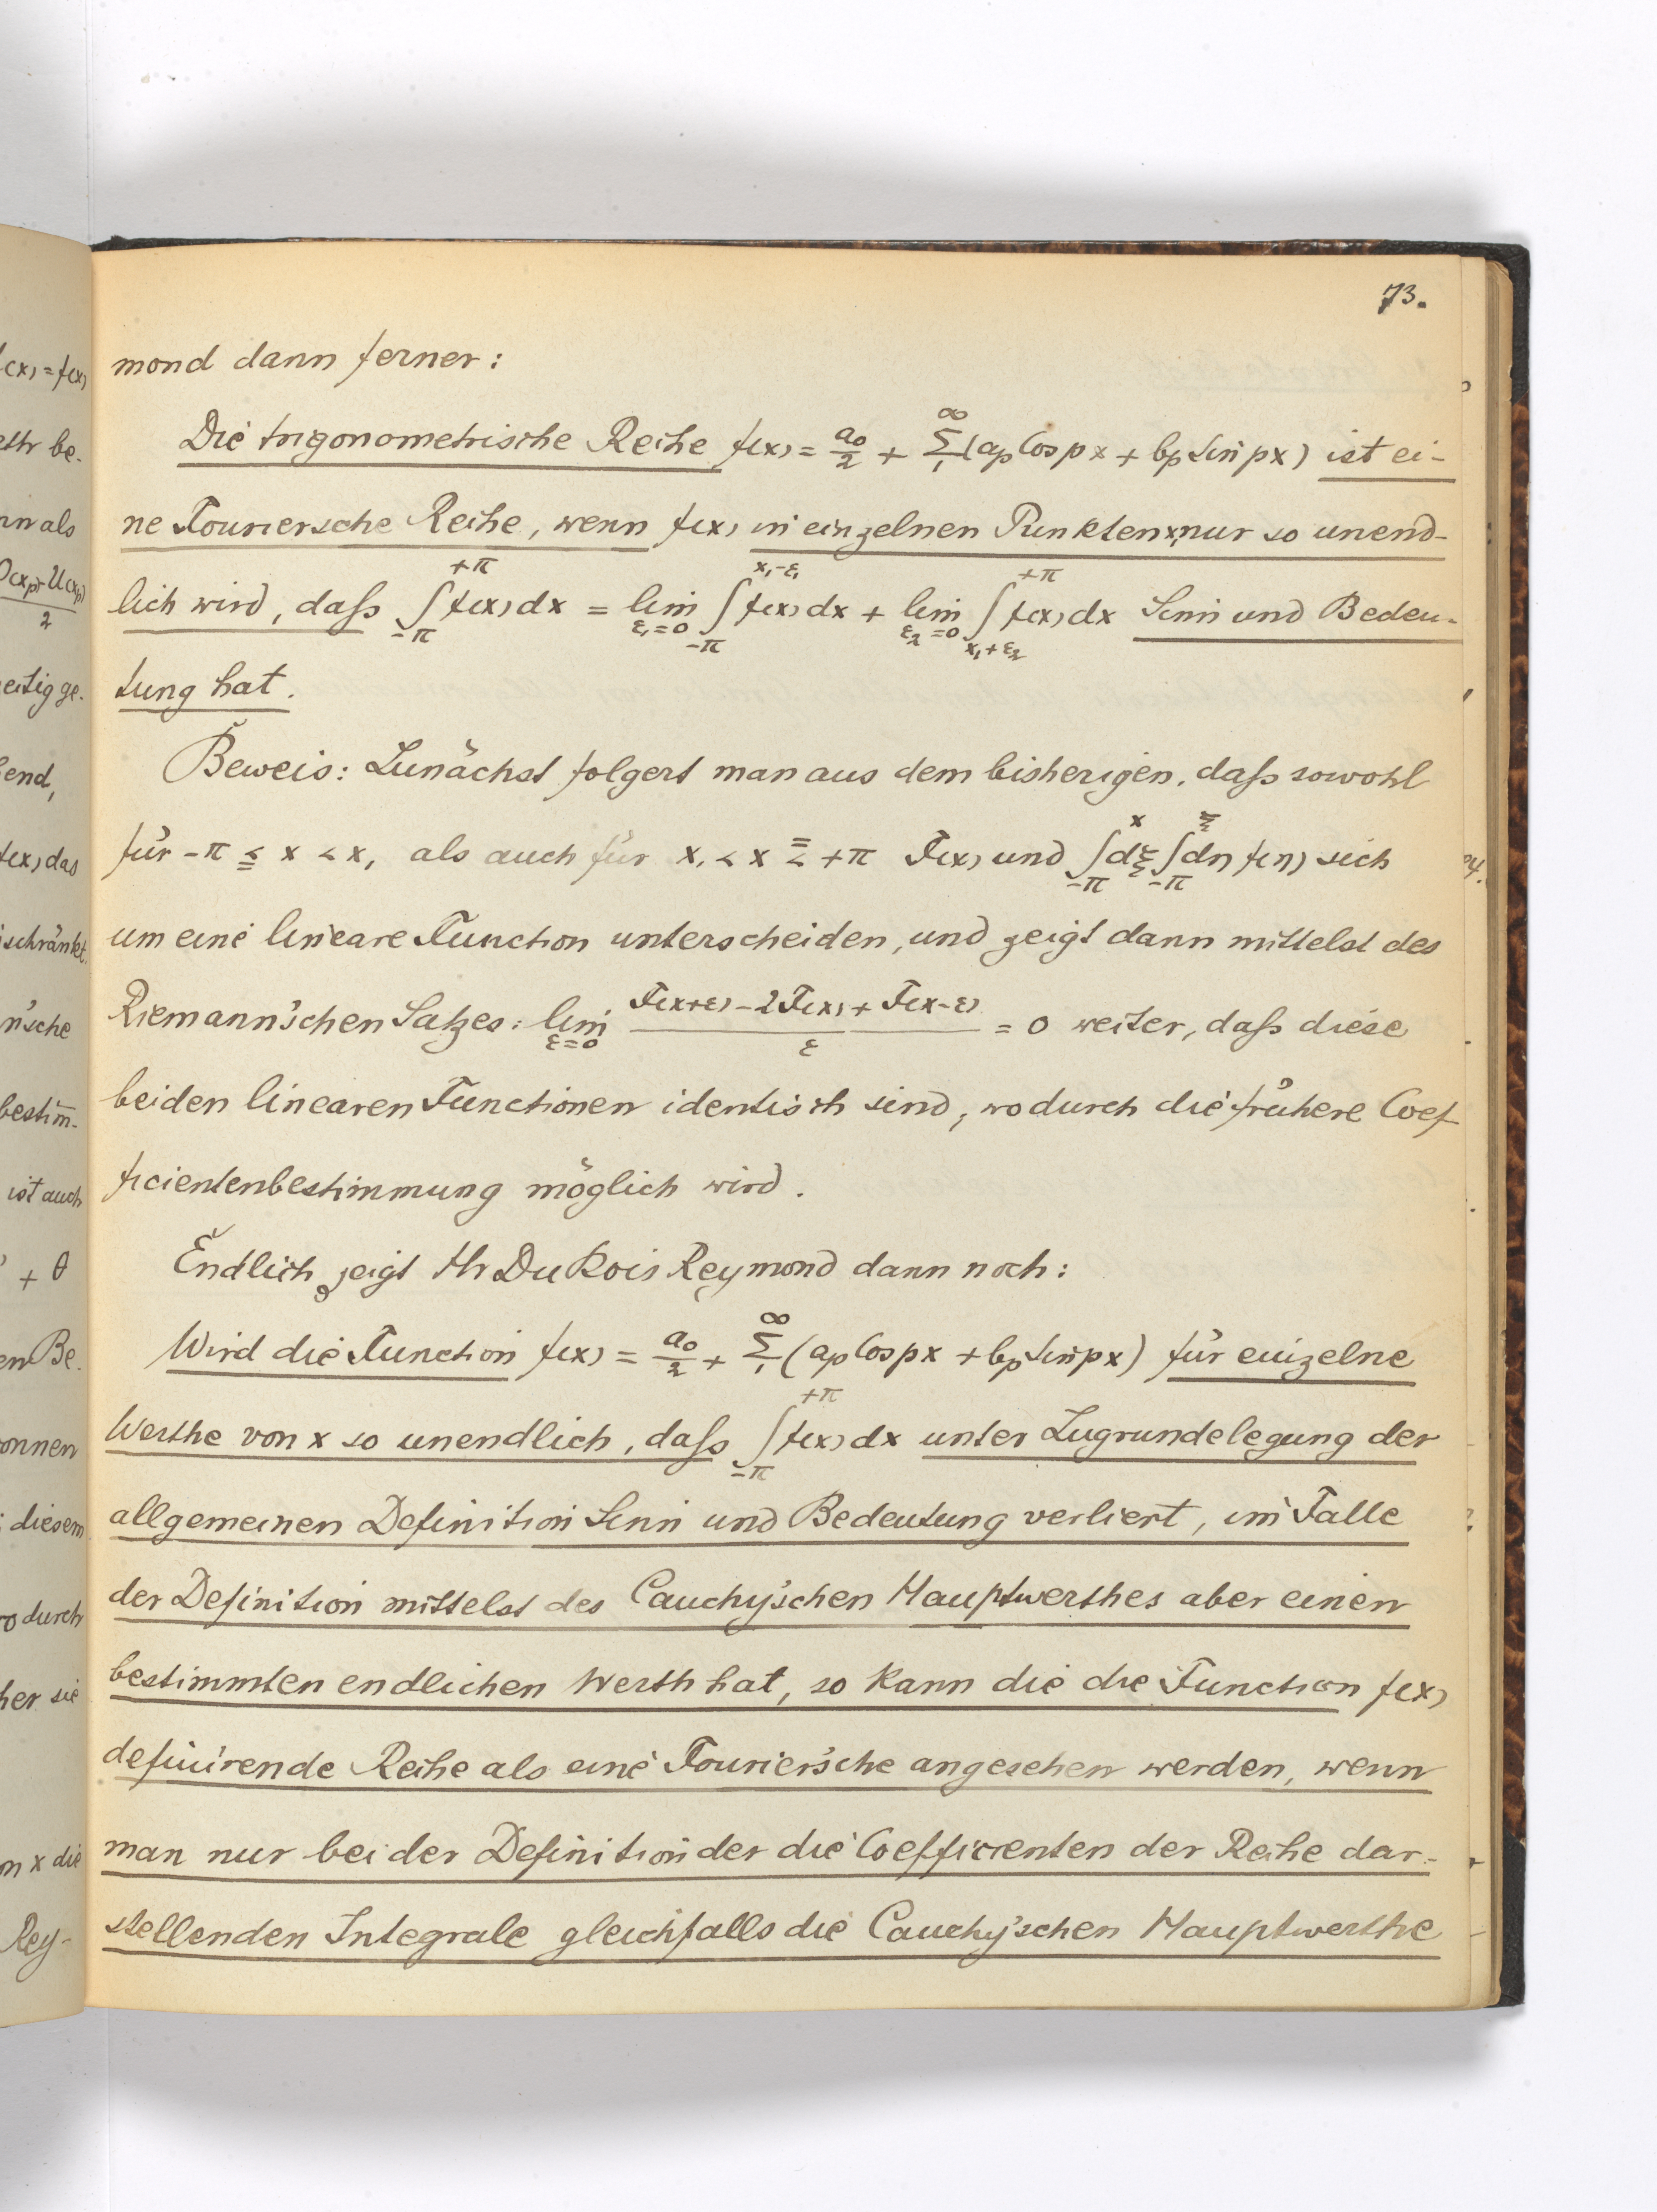 73.
mond dann ferner:
Die trigonometrische Reihe f(x) = a₀/2 + ∑₁^∞ (aₚ Cos px + bₚ Sin px) ist ei-
ne Fouriersche Reihe, wenn f(x) in einzelnen Punkten x₁ nur so unend-
lich wird, daſs ∫_{-π}^{+π} f(x) dx = lim_{ε₁=0} ∫_{-π}^{x₁-ε₁} f(x) dx + lim_{ε₂=0} ∫_{x₁+ε₂}^{+π} f(x) dx Sinn und Bedeu-
tung hat.
Beweis: Zunächst folgert man aus dem bisherigen, daſs sowohl
für -π ≤ x < x₁ als auch für x₁ < x ≤ +π F(x) und ∫_{-π}^{x} dξ ∫_{-π}^{ξ} dη f(η) sich
um eine lineare Function unterscheiden, und zeigt dann mittelst des
Riemann'schen Satzes: lim_{ε=0} (F(x+ε) - 2F(x) + F(x-ε))/ε = 0 weiter, daſs diese
beiden linearen Functionen identisch sind, wodurch die frühere Coef-
ficientenbestimmung möglich wird.
Endlich zeigt Hr Du Bois Reymond dann noch:
Wird die Function f(x) = a₀/2 + ∑₁^∞ (aₚ Cos px + bₚ Sin px) für einzelne
Werthe von x so unendlich, daſs ∫_{-π}^{+π} f(x) dx unter Zugrundelegung der
allgemeinen Definition Sinn und Bedeutung verliert, im Falle
der Definition mittelst des Cauchy'schen Hauptwerthes aber einen
bestimmten endlichen Werth hat, so kann die die Function f(x)
definirende Reihe als eine Fourier'sche angesehen werden, wenn
man nur bei der Definition der die Coefficienten der Reihe dar-
stellenden Integrale gleichfalls die Cauchy'schen Hauptwerthe